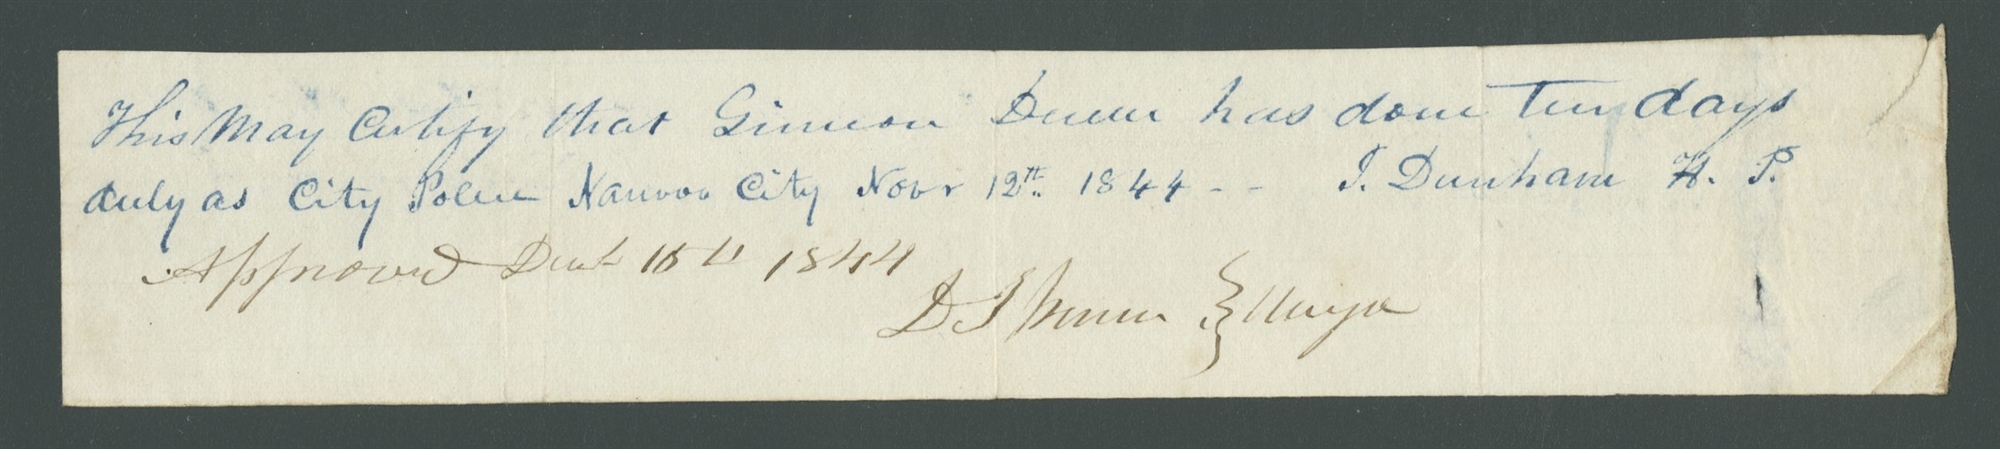 This May Certify that Simeon Dunn has done Ten days
duty as City Police Nauvoo City Novr 12th. 1844 - - J. Dunham H. P.
Approved Dect 16th 1844
D Spencer } Mayor